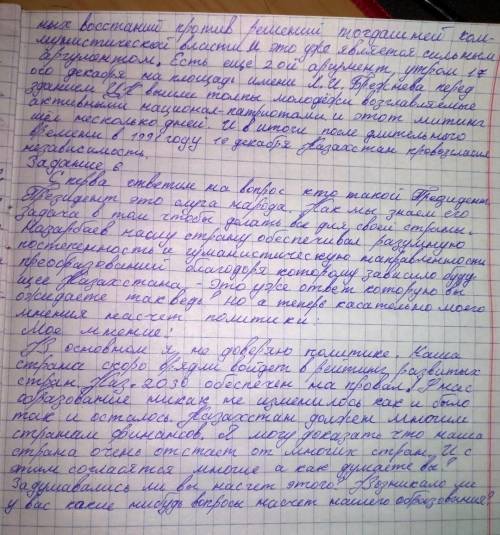 ных восстаний против решений тогдашней ком-
мунистической власти и это уже является сильным
аргументом. Есть еще 2ой аргумент, утром 17
ого декабря на площадь имени Л.И. Брежнева перед
зданием ЦК вышли толпы молодёжи возглавляемые
активными национал-патриотами и этот митинг
шел несколько дней. И в итоге после длительного
времени в 1991 году 16 декабря Казахстан провозгласил
независимость.
Задание 6
Сперва ответим на вопрос кто такой Президент
Президент это слуга народа. Как мы знаем его
задача в том чтобы делать все для своей страны.
Назарбаев нашу страну обеспечивал разумную
постепенность и гуманистическую направленность
преобразований благодоря которому зависило буду
щее Казахстана. - это уже ответ которую вы
ожидаете так ведь но а теперь касательно моего
мнения насчет политики:
Мое мнение:
В основном я не доверяю политике. Наша
страна скоро врядли войдет в рейтинг развитых
стран. Каз. 2030 обеспечен на провал. У нас
образование никак не изменилось как и было
так и осталось. Казахстан должен многим
странам финансов. Я могу доказать что наша
страна очень отстает от многих стран. И с
этим согласятся многие а как думаете вы?
Задумавались ли вы насчет этого? Возникало ли
у вас какие нибудь вопросы насчет нашего образования?